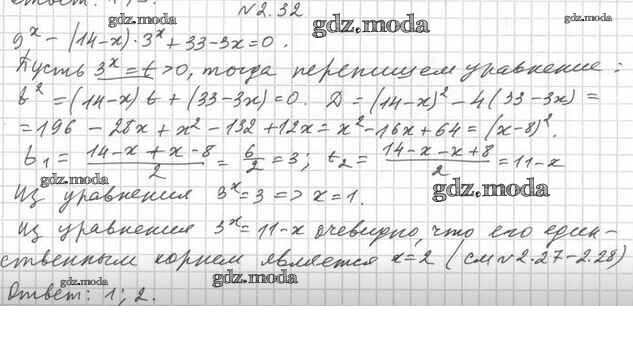 №2.32
9^x − (14−x)·3^x + 33−3x=0.
Пусть 3^x = t >0, тогда перепишем уравнение:
t^2 =(14−x)t + (33−3x)=0. D = (14−x)^2 − 4(33−3x) =
=196 − 28x + x^2 −132 +12x = x^2−16x+64 = (x−8)^2.
t_1 = (14−x + x −8)/2 = 6/2 = 3; t_2 = (14−x −x+8)/2 = 11−x
Из уравнения 3^x=3 => x=1.
Из уравнения 3^x= 11−x очевидно, что его един-
ственным корнем является x=2 (см №2.27−2.28)
Ответ: 1; 2.
gdz.moda
gdz.moda
gdz.moda
gdz.moda
gdz.moda
gdz.moda
gdz.moda